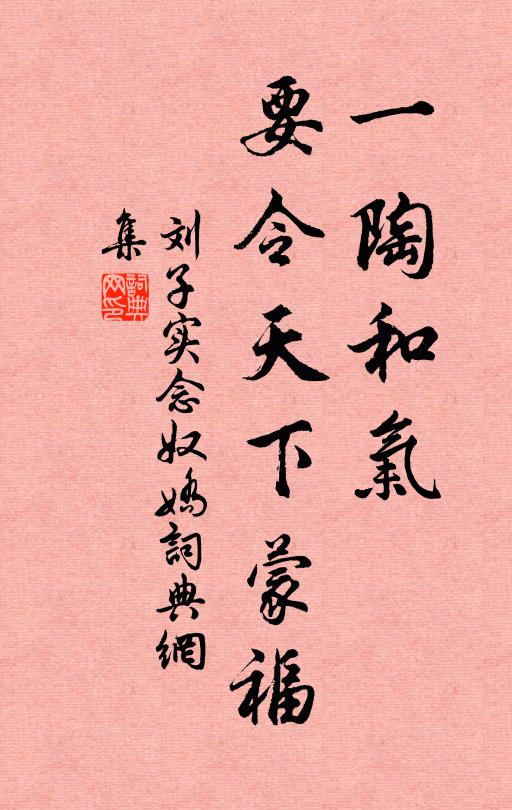 一陶和氣
要令天下蒙福
刘子实念奴嬌詞典網
集
詞典
网印